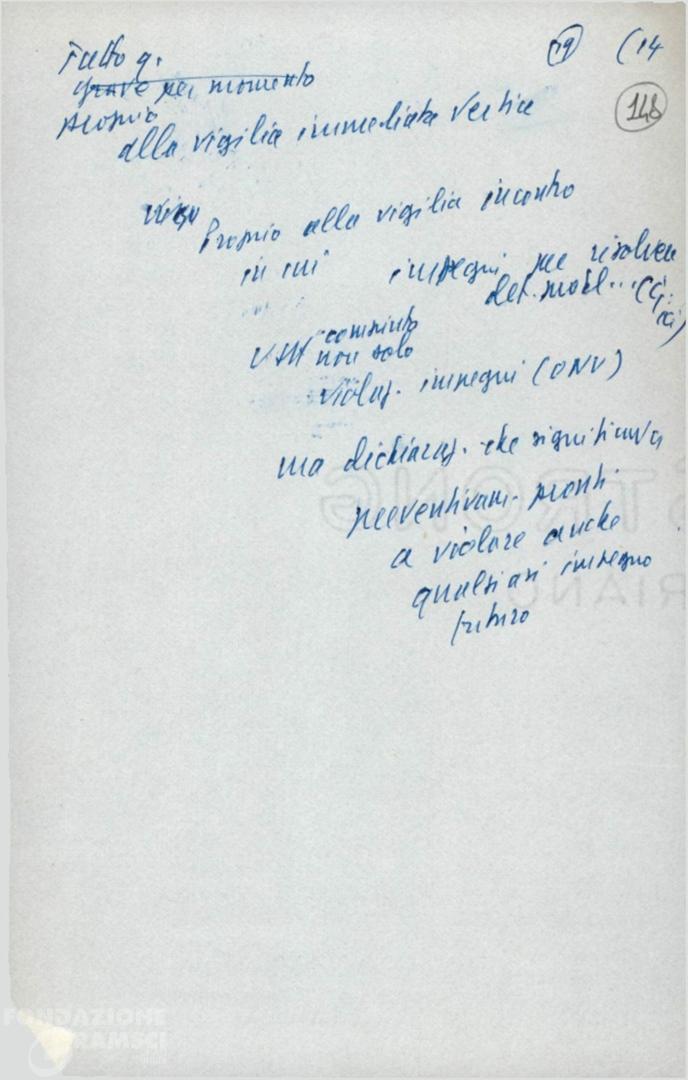 Fatto g.
19
(14
grave per momento
148
proprio
alla vigilia immediata vertice
Proprio alla vigilia incontro
in cui impegni per risolvere
det. probl...
USA compiuto
non solo
violaz. impegni (ONU)
ma dichiaraz. che significava
preventivam. pronti
a violare anche
qualsiasi impegno
futuro
STRONG
RIANO
FONDAZIONE
GRAMSCI